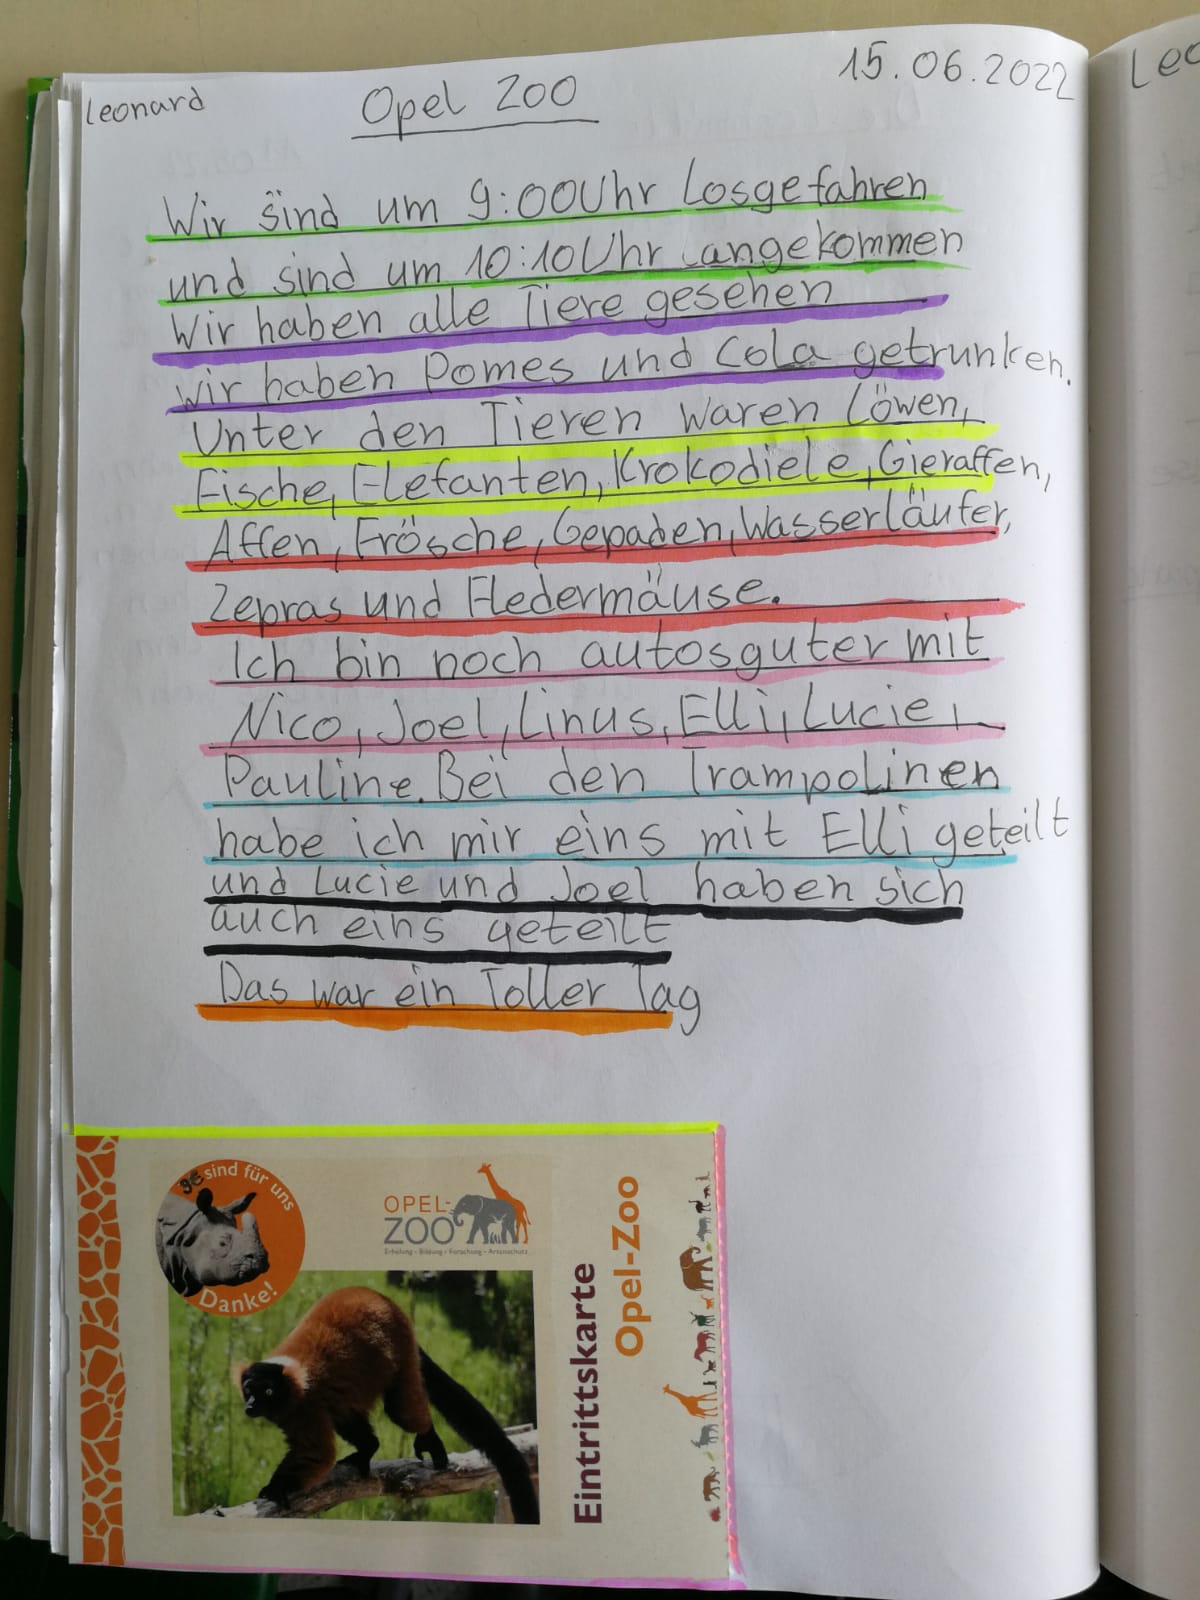 Leonard
Opel Zoo
15.06.2022
Leo
Wir sind um 9:00Uhr Losgefahren
und sind um 10:10Uhr angekommen
Wir haben alle Tiere gesehen
wir haben Pomes und Cola getrunken.
Unter den Tieren waren Löwen,
Fische, Elefanten, Krokodiele, Gieraffen,
Affen, Frösche, Gepaden, Wasserläufer,
Zepras und Fledermäuse.
Ich bin noch autosguter mit
Nico, Joel, Linus, Elli, Lucie,
Pauline. Bei den Trampolinen
habe ich mir eins mit Elli geteilt
und Lucie und Joel haben sich
auch eins geteilt
Das war ein Toller Tag
sind für uns
Danke!
OPEL-
ZOO
Erhaltung - Bildung - Forschung - Artenschutz
Eintrittskarte
Opel-Zoo